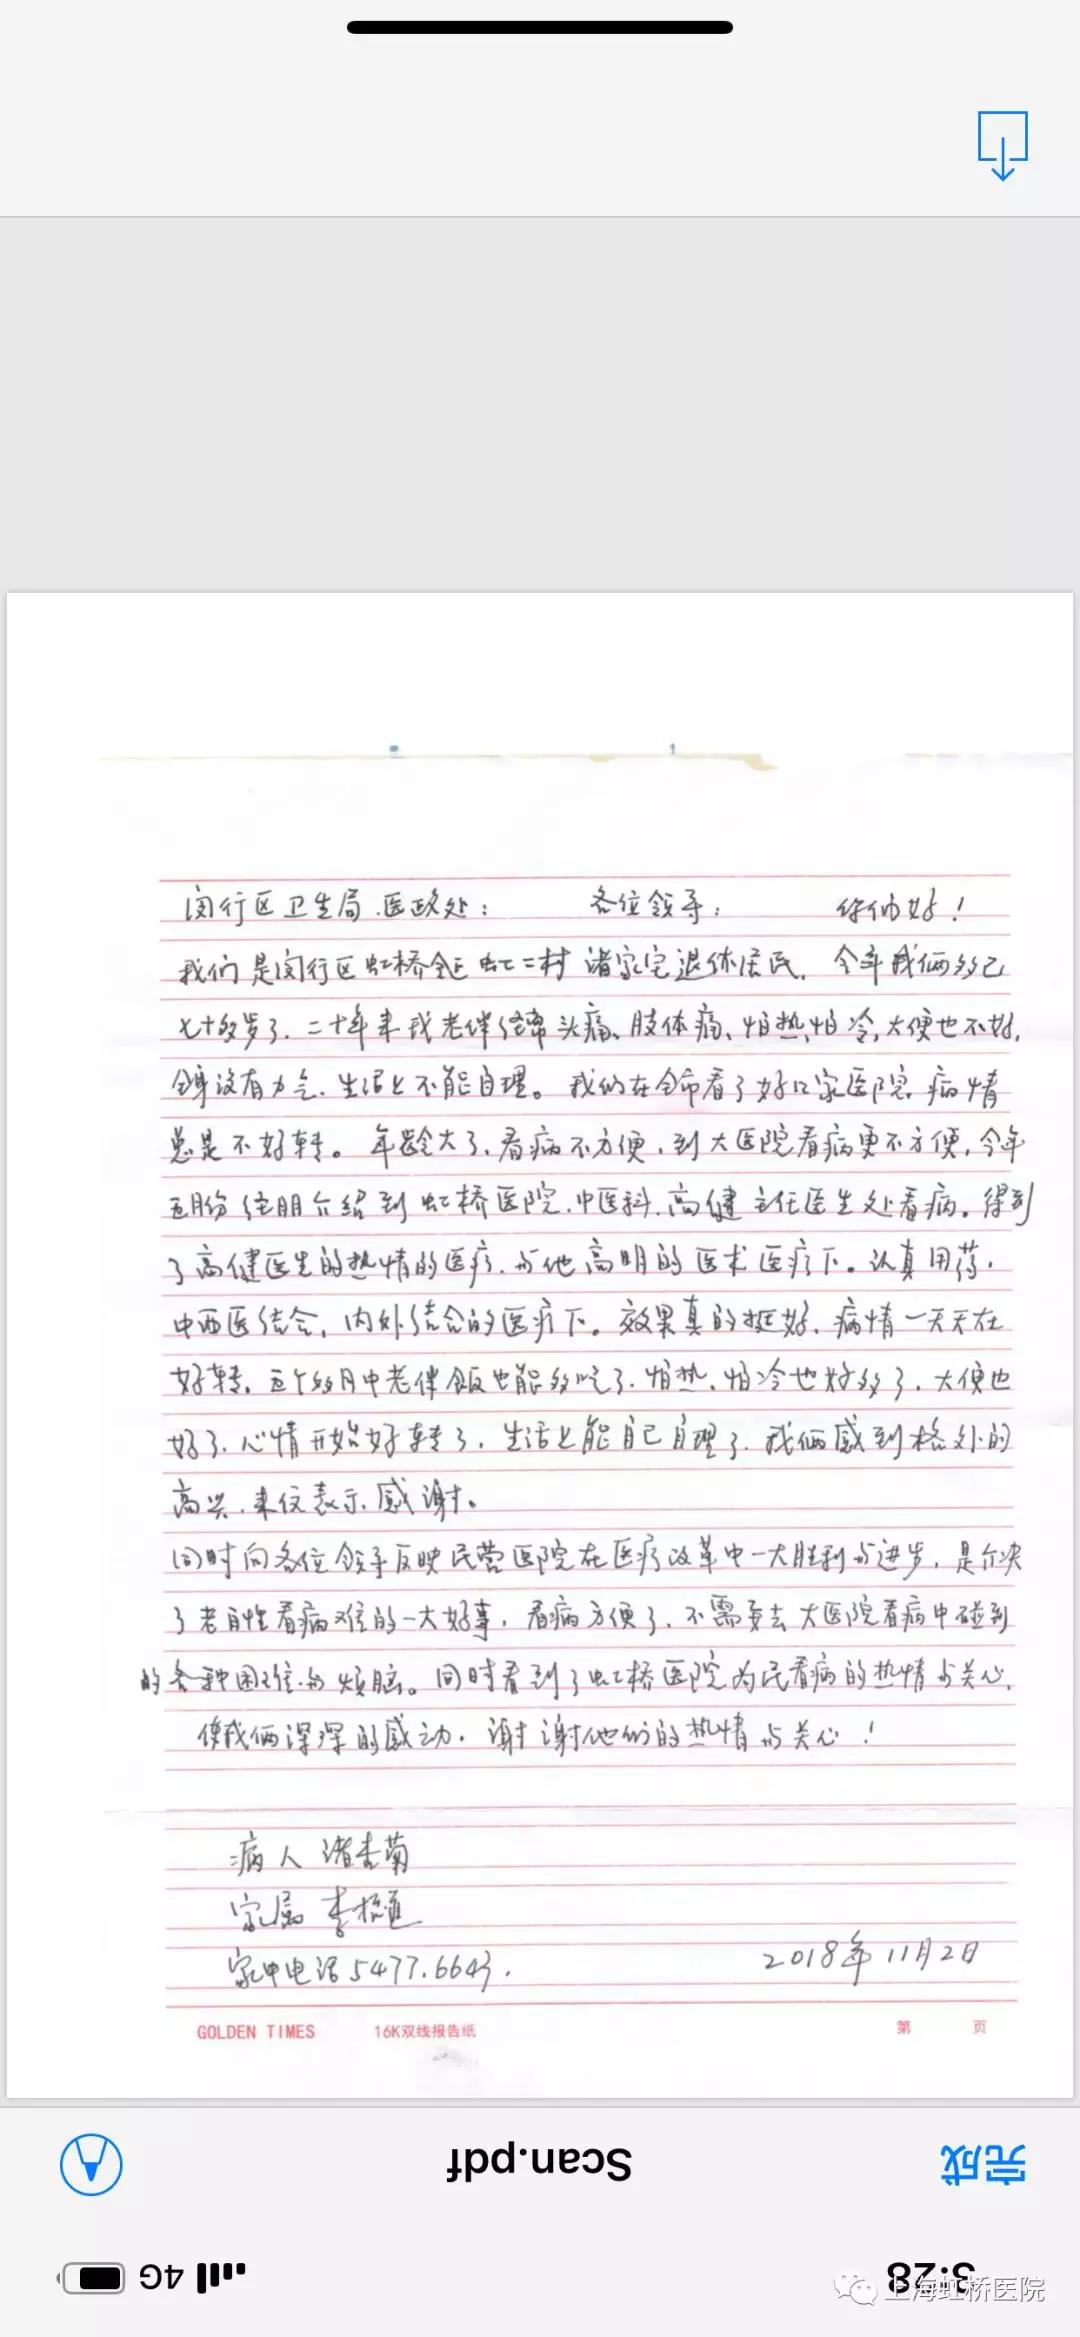 闵行区卫生局.医政处： 各位领导： 你们好！
我们是闵行区虹桥镇虹二村 诸家宅退休居民. 今年我俩多已
七十多岁了、二十年来我老伴经常头痛、肢体痛、怕热、怕冷，大便也不好,
全身没有力气、生活上不能自理。我们在全市看了好几家医院. 病情
总是不好转。年龄大了、看病不方便，到大医院看病更不方便，今年
五月份经朋介绍到虹桥医院.中医科.高健主任医生处看病。得到
了高健医生的热情的医疗.与他高明的医术医疗下。认真用药，
中西医结合，内外结合的医疗下。效果真的挺好、病情一天天在
好转。五个多月中老伴饭也能多吃了、怕热、怕冷也好多了、大便也
好了、心情开始好转了、生活上能自己自理了、我俩感到格外的
高兴.来信表示感谢。
同时向各位领导反映民营医院在医疗改革中一大胜利与进步，是介决
了老百性看病难的一大好事，看病方便了、不需要去大医院看病中碰到
的各种困难与烦脑。同时看到了虹桥医院为民看病的热情与关心，
使我俩深深的感动. 谢谢他们的热情与关心！
病人 诸杏菊
家属 李
家中电话5477.6643. 2018年11月2日
GOLDEN TIMES 16K双线报告纸 第 页
Scan.pdf 完成
4G 3:28
上海虹桥医院